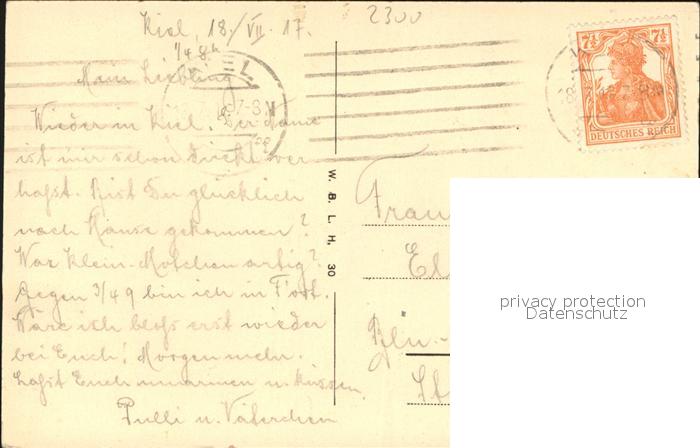 Kiel, 18./VII. 17.
2300
1/4 8 h
Mein Liebling
Wieder in Kiel. Der Name
ist mir schon direkt ver
hasst. Bist Du glücklich
nach Hause gekommen?
War Klein-Motchen artig?
Gegen 3/4 9 bin ich in Fort.
Wäre ich bloss erst wieder
bei Euch! Morgen mehr.
Lasst Euch umarmen u. küssen
Pulli u. Väterchen
W. B. L. H. 30
7½ 7½
DEUTSCHES REICH
7-8 V
Frau
El
Bln.-
St
privacy protection
Datenschutz